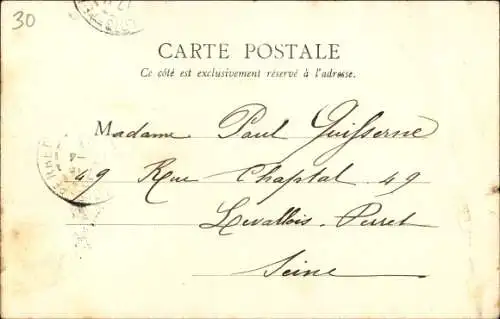 30
CARTE POSTALE
Ce côté est exclusivement réservé à l'adresse.
Madame Paul Guisserne
49 Rue Chaptal 49
Levallois-Perret
Seine